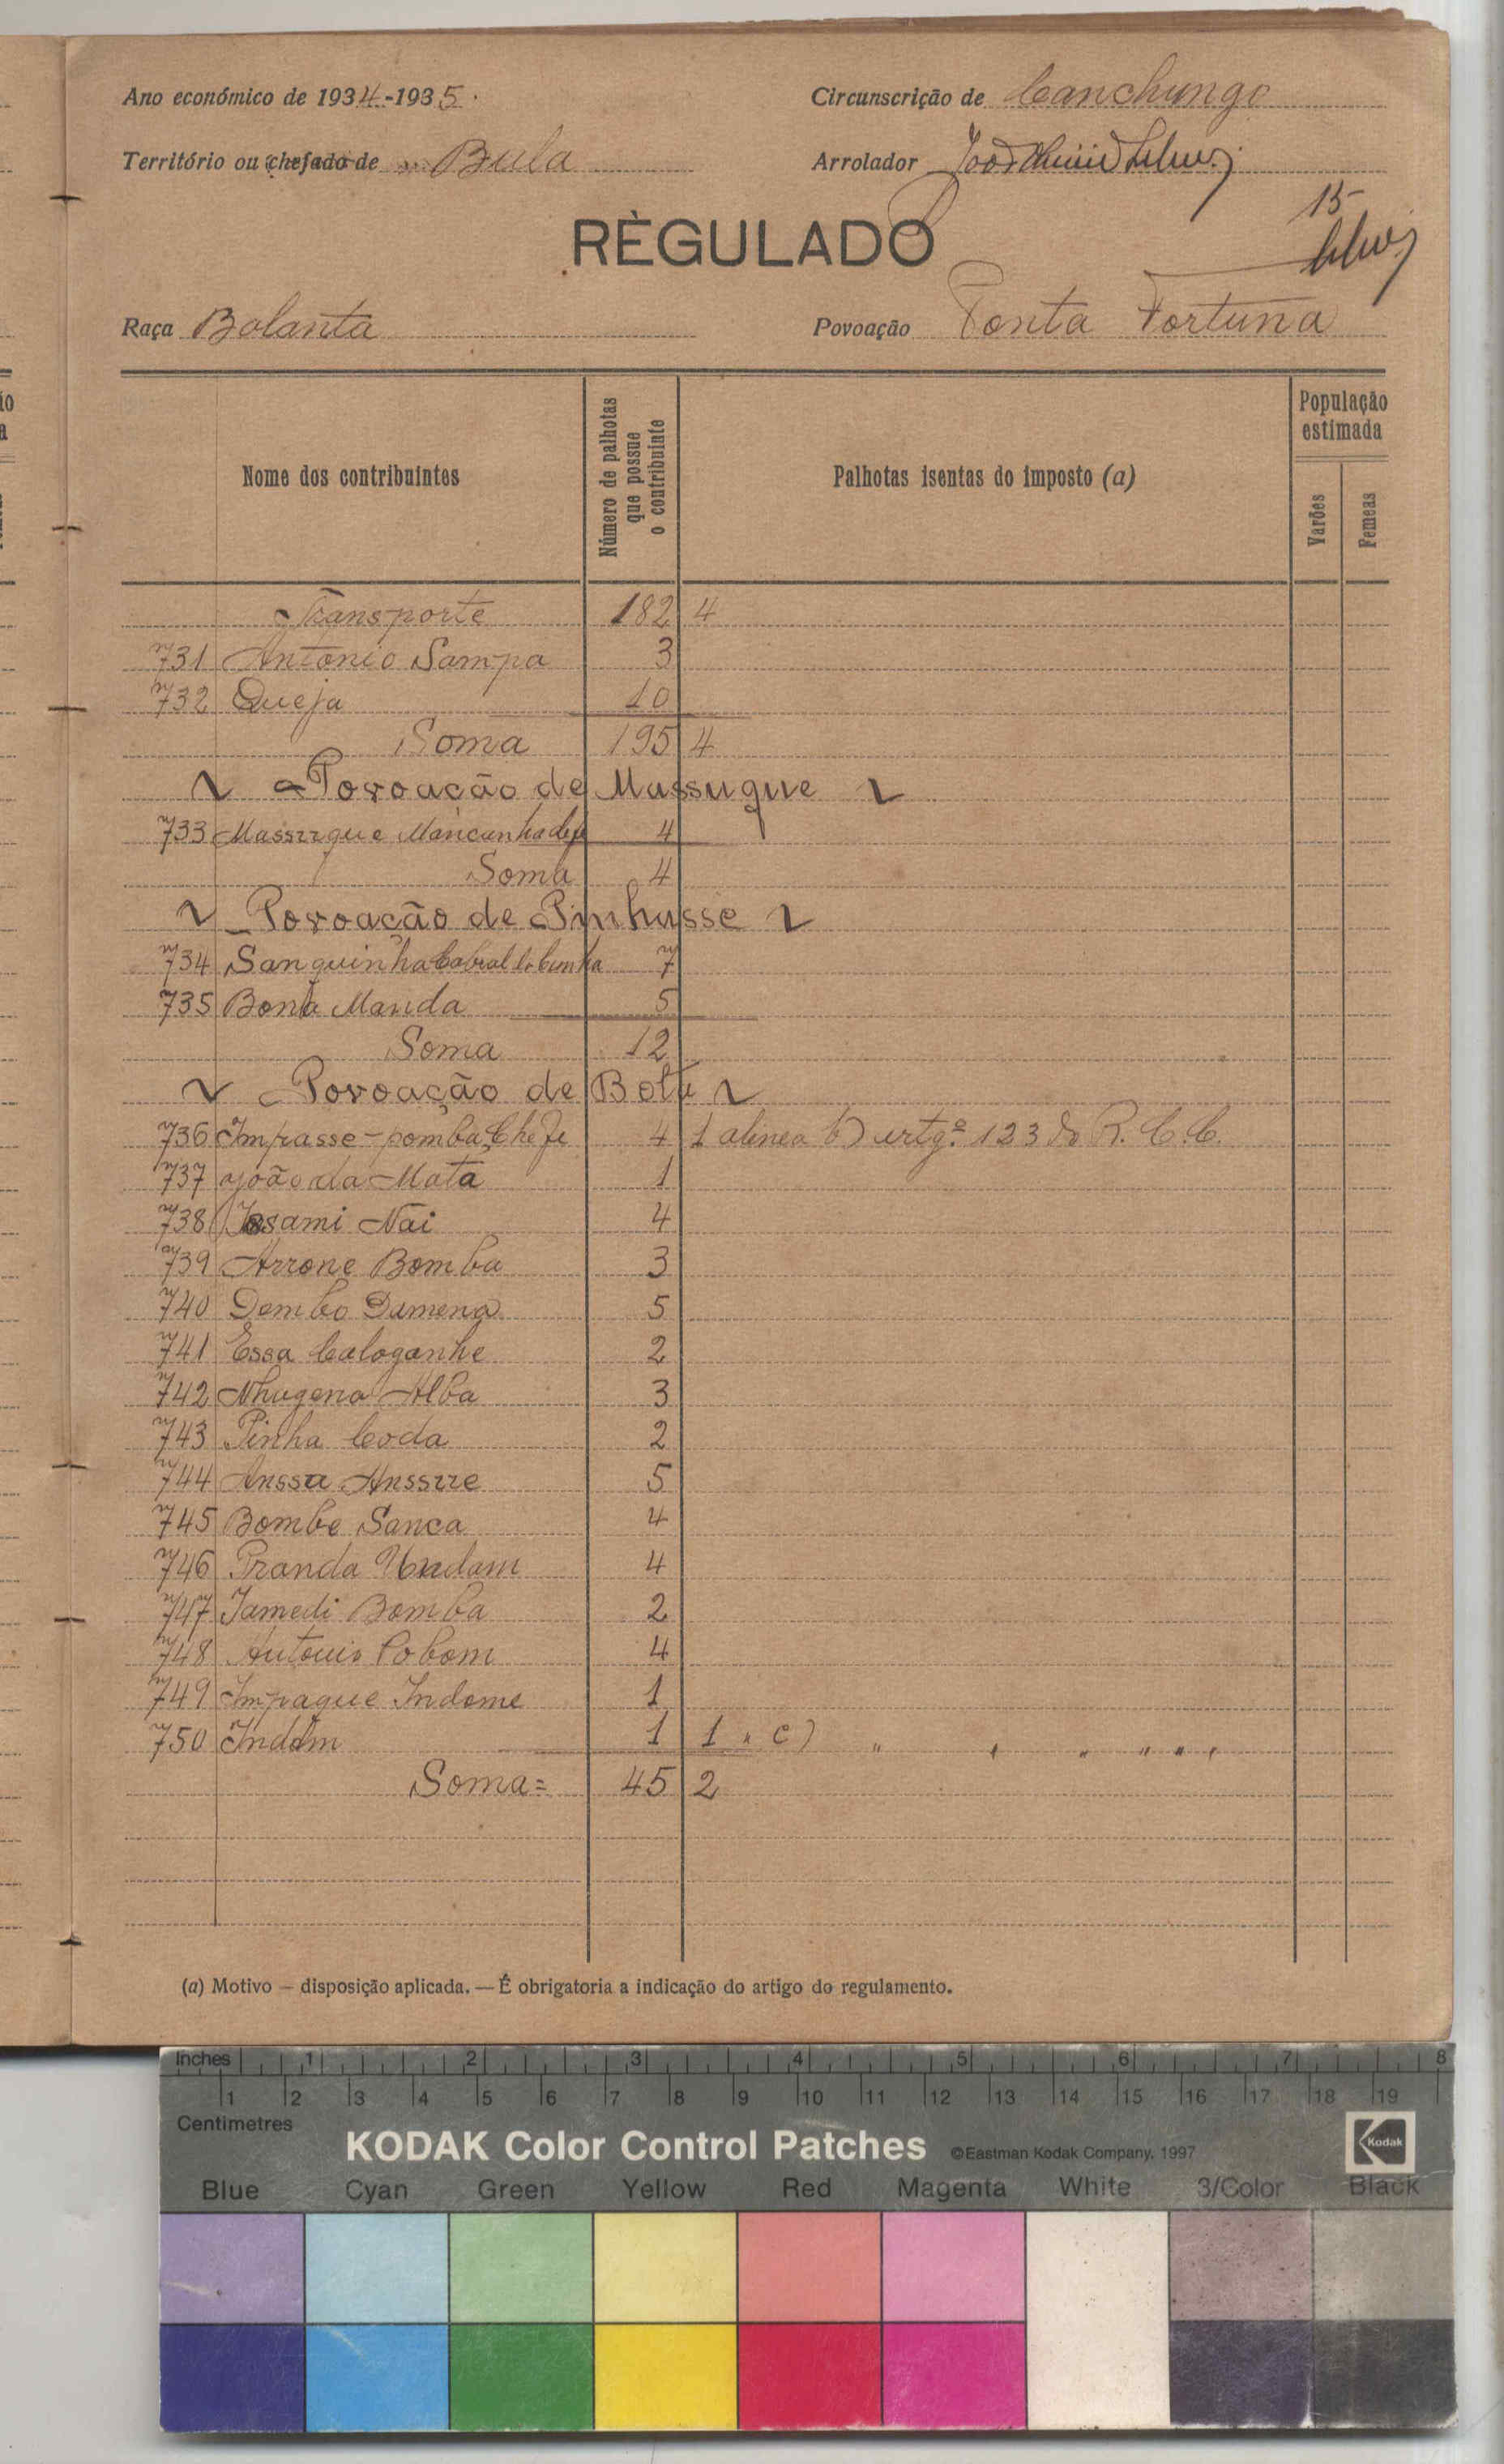 Ano económico de 1934-1935. Circunscrição de Canchungo
Território ou chefado de Bula Arrolador
15
RÈGULADO
Raça Balanta Povoação Ponta Fortuna
Nome dos contribuintes
Número de palhotas que possue o contribuinte
Palhotas isentas do imposto (a)
População estimada
Varões
Femeas
Transporte 182 4
731 Antonio Sampa 3
732 Queja 10
Soma 195 4
Povoação de Massuque
733 Massuque Mancanha 4
Soma 4
Povoação de Pinhasse
734 Sanquinha Cabral da Cunha 7
735 Bona Manda 5
Soma 12
Povoação de Bota
736 Impasse-pomba, Chefe 4 1 alinea b) artgº 123 do R. C. C.
737 João da Mata 1
738 Issami Nai 4
739 Arrone Bomba 3
740 Dombo Damena 5
741 Essa Caloganhe 2
742 Nhagena Alba 3
743 Pinha Coda 2
744 Anssa Anssue 5
745 Bombe Sanca 4
746 Pranda Undam 4
747 Jamedi Bomba 2
748 Antonio Cobom 4
749 Impaque Indome 1
750 Indám 1 1 " c) " " " " " "
Soma= 45 2
(a) Motivo — disposição aplicada. — É obrigatoria a indicação do artigo do regulamento.
Inches 1 2 3 4 5 6 7 8
1 2 3 4 5 6 7 8 9 10 11 12 13 14 15 16 17 18 19
Centimetres
KODAK Color Control Patches ©Eastman Kodak Company, 1997 Kodak
Blue Cyan Green Yellow Red Magenta White 3/Color Black